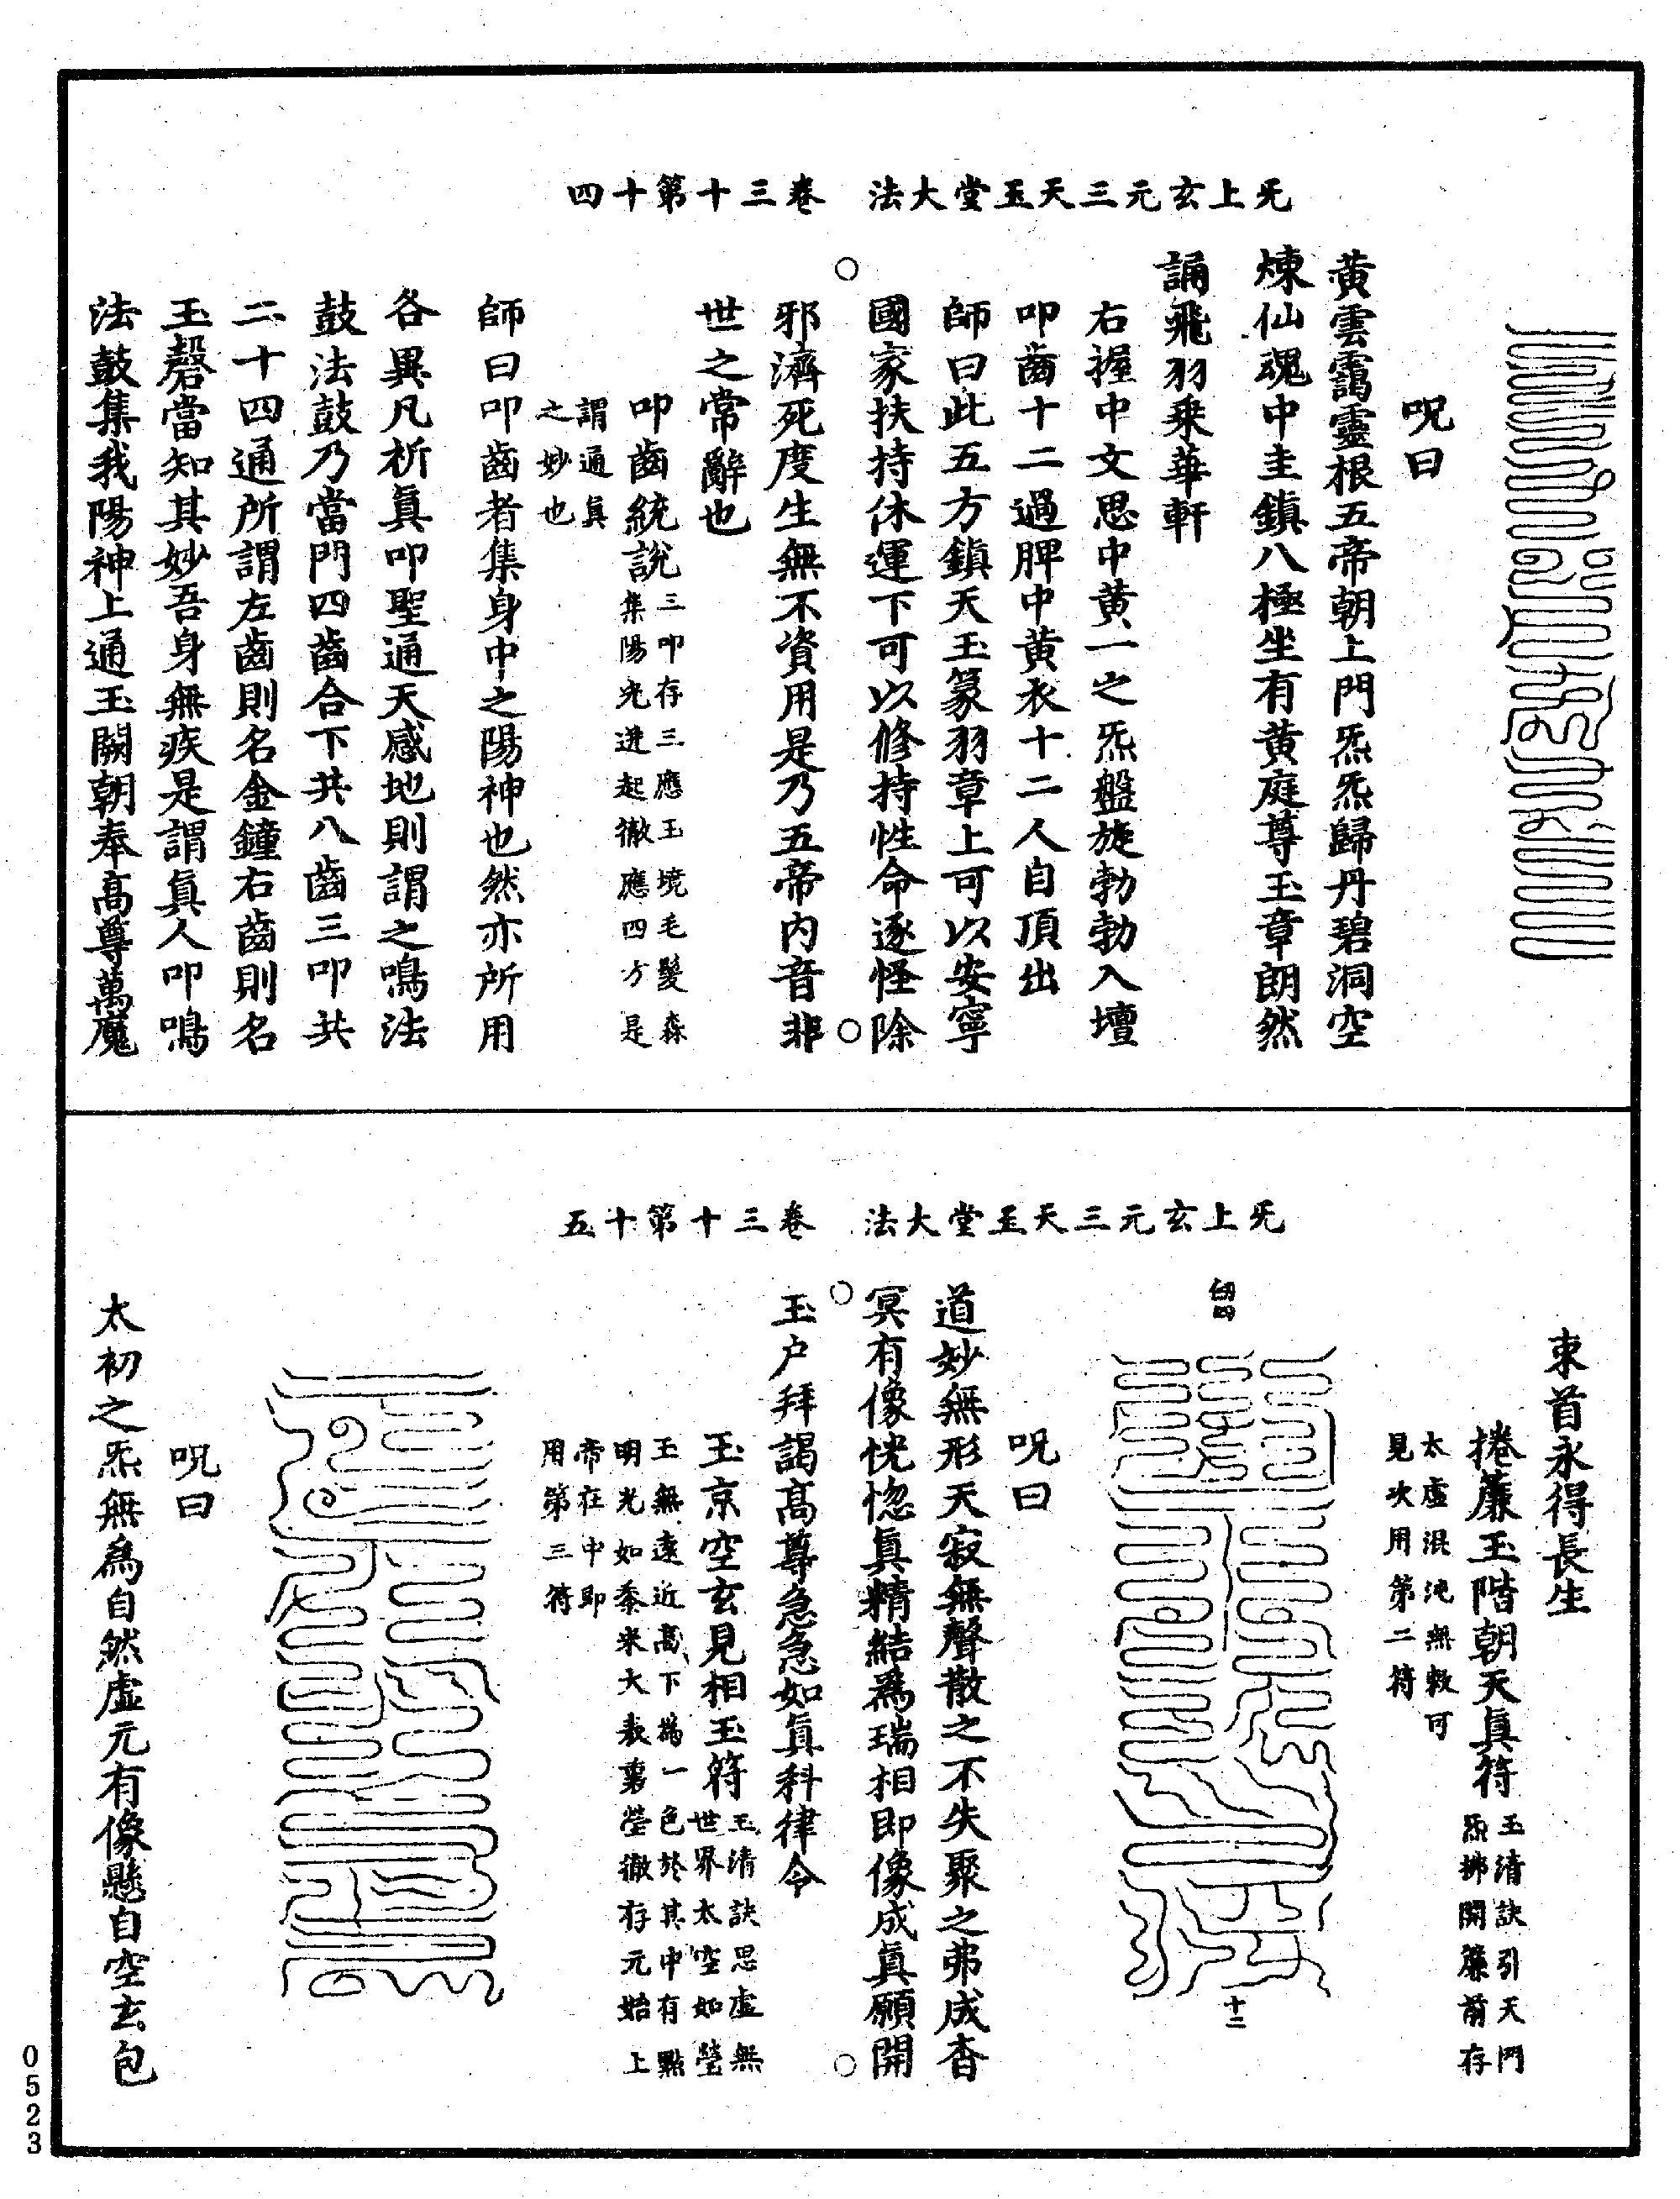 无上玄元三天玉堂大法　卷三十第十四
呪曰
黃雲靄靈根五帝朝上門炁炁歸丹碧洞空
煉仙魂中圭鎮八極坐有黃庭尊玉章朗然
誦飛羽乘華軒
右握中文思中黃一之炁盤旋勃勃入壇
叩齒十二過脾中黃衣十二人自頂出
師曰此五方鎮天玉篆羽章上可以安寧
國家扶持休運下可以修持性命逐怪除
邪濟死度生無不資用是乃五帝內音非
世之常辭也
叩齒統說三叩存三應玉境毛髮森
集陽光迸起徹應四方是
謂通眞
之妙也
師曰叩齒者集身中之陽神也然亦所用
各異凡祈眞叩聖通天感地則謂之鳴法
鼓法鼓乃當門四齒合下共八齒三叩共
二十四通所謂左齒則名金鐘右齒則名
玉磬當知其妙吾身無疾是謂眞人叩鳴
法鼓集我陽神上通玉闕朝奉高尊萬魔
无上玄元三天玉堂大法　卷三十第十五
束首永得長生
捲簾玉階朝天眞符玉清訣引天門
炁拂開簾前存
太虛混沌無敎可
見次用第二符
十二
呪曰
道妙無形天寂無聲散之不失聚之弗成杳
冥有像恍惚眞精結爲瑞相即像成眞願開
玉戶拜謁高尊急急如眞科律令
玉京空玄見相玉符玉清訣思虛無
世界太空如瑩
玉無遠近高下爲一色於其中有點
明光如黍米大裁剪瑩徹存元始上
帝在中即
用第三符
呪曰
太初之炁無爲自然虛元有像懸自空玄包
0523